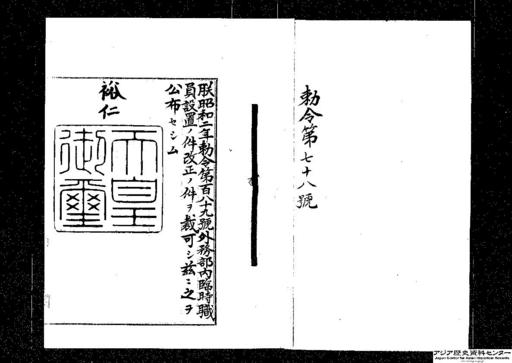 勅令第七十八號
朕昭和二年勅令第百八十九號外務部內臨時職
員設置ノ件改正ノ件ヲ裁可シ茲ニ之ヲ
公布セシム
裕仁
天皇
御璽
アジア歴史資料センター
Japan Center for Asian Historical Records